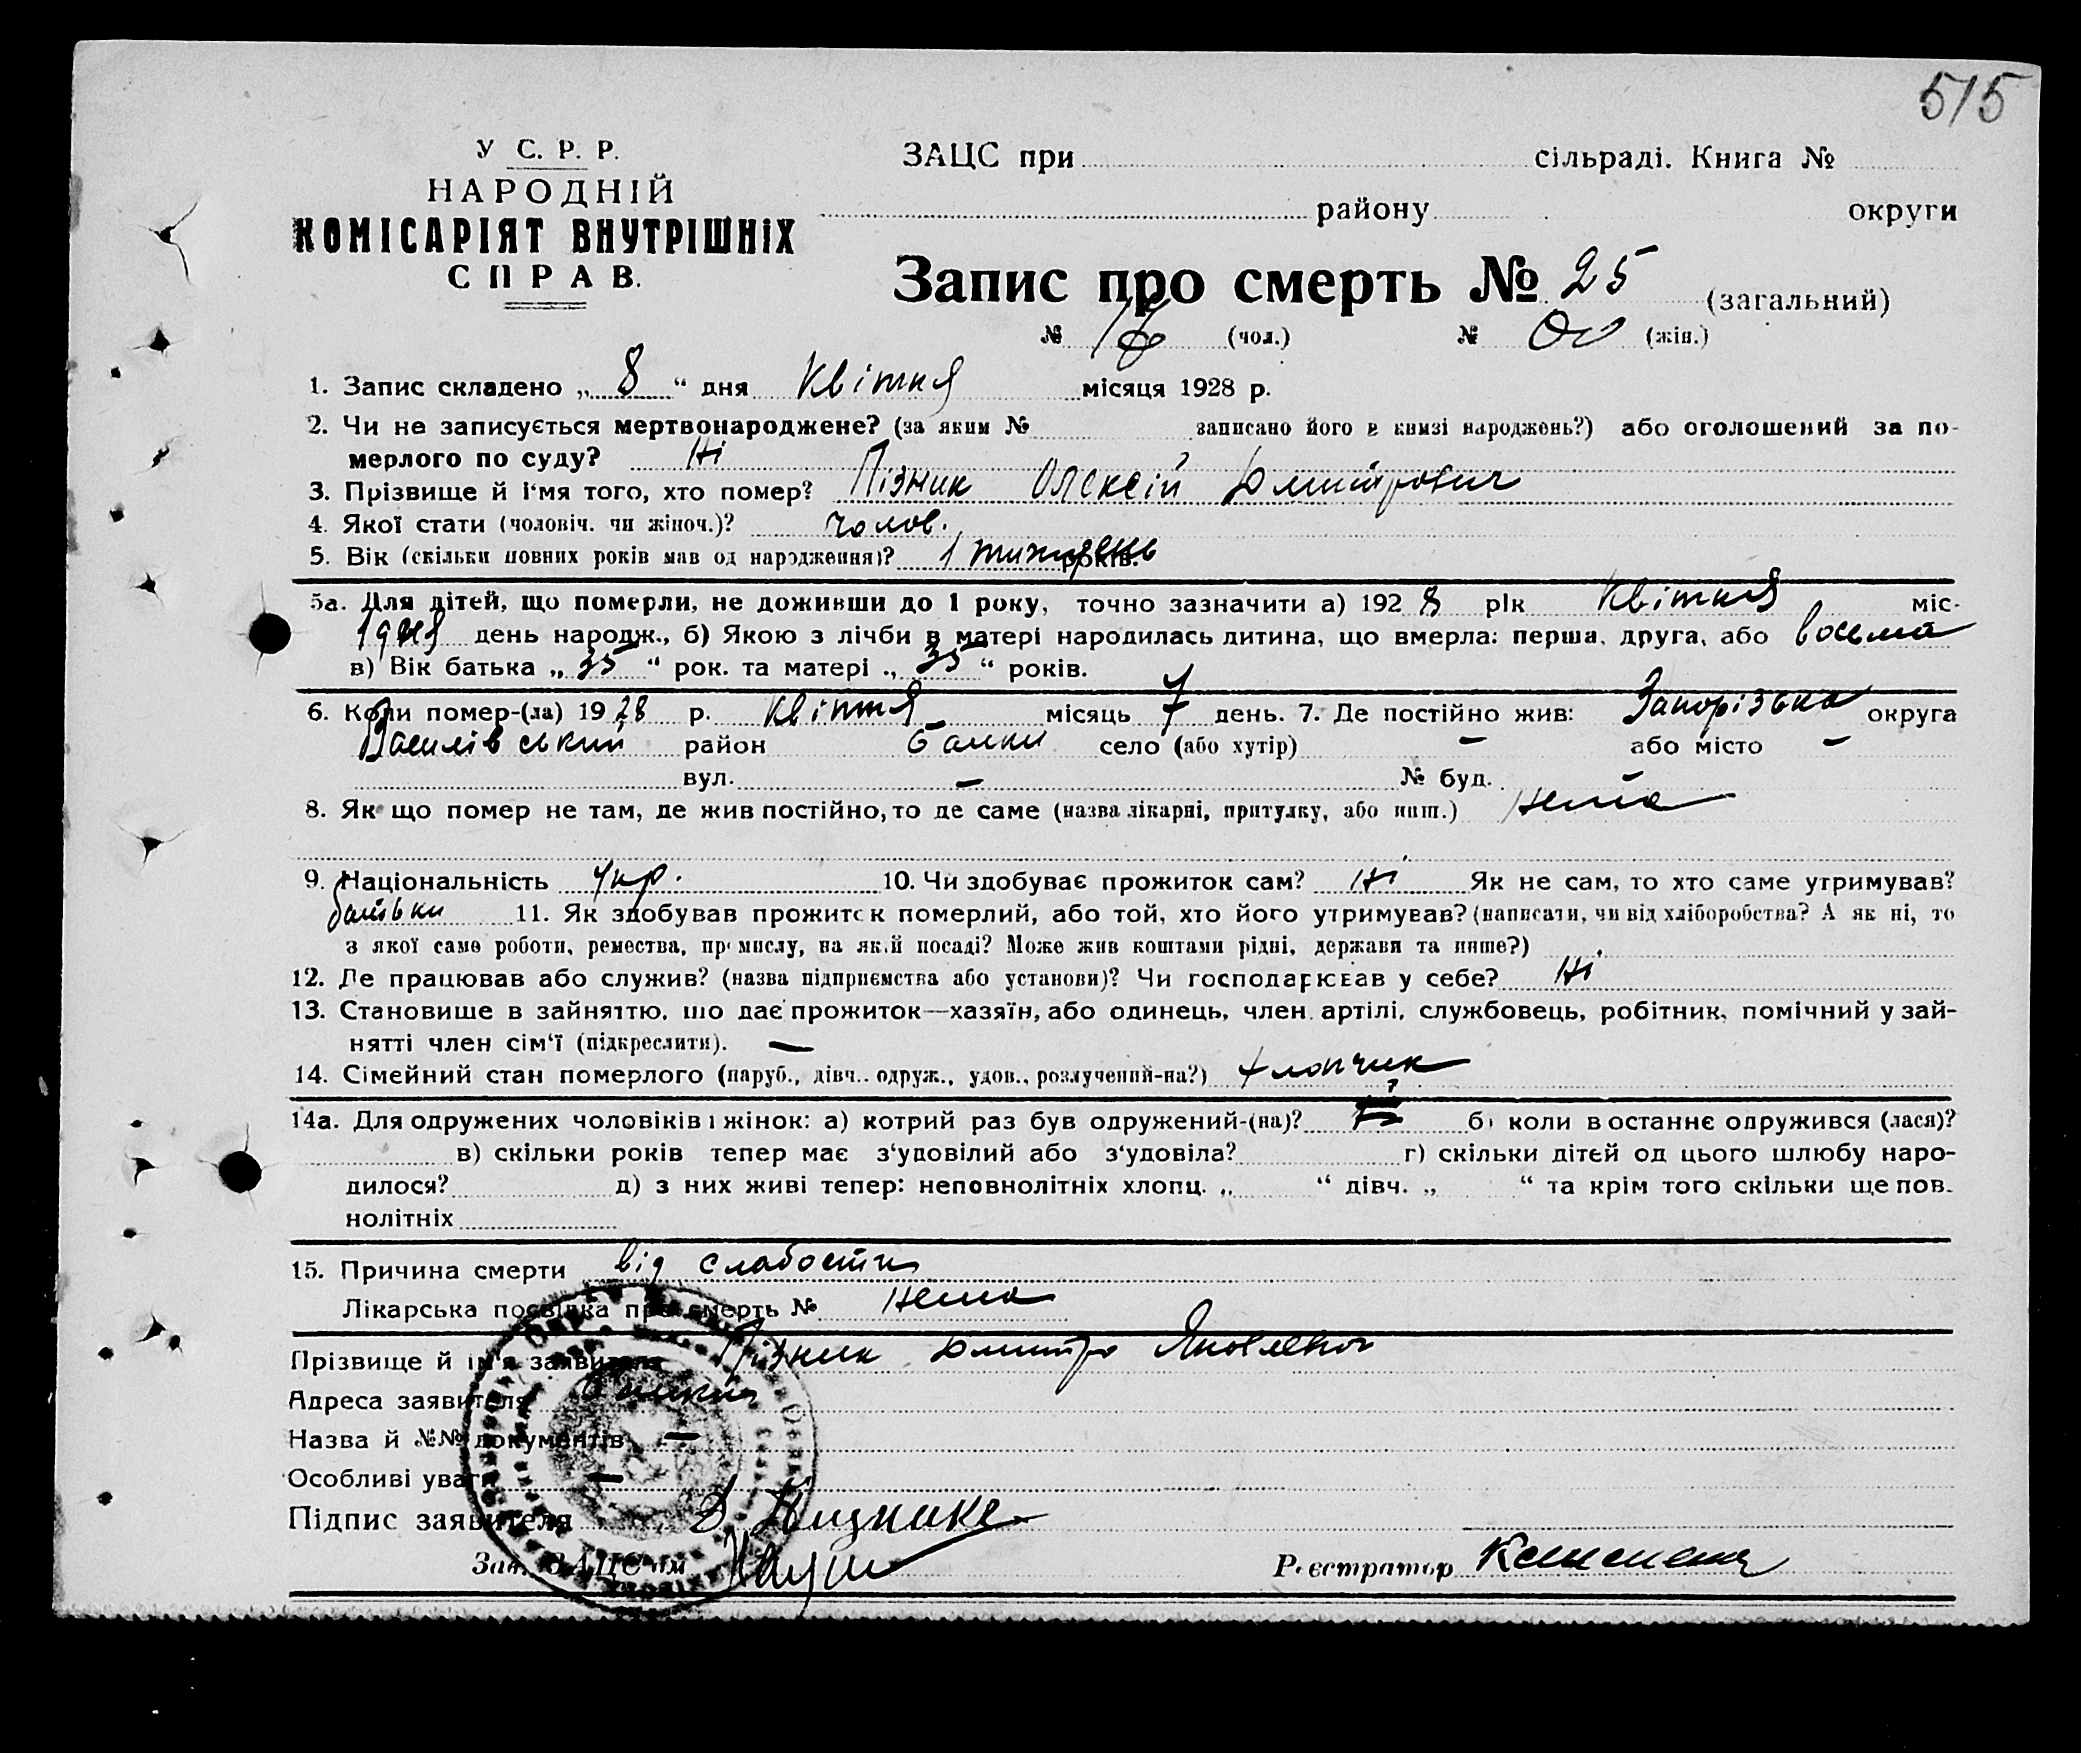 515
У С. Р. Р.
НАРОДНІЙ
КОМІСАРІЯТ ВНУТРІШНІХ
СПРАВ.
ЗАЦС при сільраді. Книга №
району округи
Запис про смерть № 25 (загальний)
№ (чол.) № (жін.)
1. Запис складено „ 8 “ дня Квітня місяця 1928 р.
2. Чи не записується мертвонароджене? (за яким № записано його в книзі народжень?) або оголошений за по-
мерлого по суду? Ні
3. Прізвище й ім'я того, хто помер? Пізник Олексій Дмитрович
4. Якої стати (чоловіч. чи жіноч.)? чолов.
5. Вік (скільки повних років мав од народження)? 1 тиждень років.
5а. Для дітей, що померли, не доживши до 1 року, точно зазначити а) 192 8 рік Квітня міс-
1 дня день народж., б) Якою з лічби в матері народилась дитина, що вмерла: перша, друга, або восьма
в) Вік батька „ 35 “ рок. та матері „ 35 “ років.
6. Коли помер-(ла) 19 28 р. Квітня місяць 7 день. 7. Де постійно жив: Запорізька округа
Василівський район Балки село (або хутір) — або місто —
вул. — № буд. —
8. Як що помер не там, де жив постійно, то де саме (назва лікарні, притулку, або инш.) нема
9. Національність Укр. 10. Чи здобуває прожиток сам? Ні Як не сам, то хто саме утримував?
батьки 11. Як здобував прожиток померлий, або той, хто його утримував? (написати, чи від хліборобства? А як ні, то
з якої саме роботи, ремества, промислу, на якій посаді? Може жив коштами рідні, держави та инше?)
12. Де працював або служив? (назва підприємства або установи)? Чи господарював у себе? Ні
13. Становище в зайняттю, що дає прожиток—хазяїн, або одинець, член артілі, службовець, робітник, помічний у зай-
нятті член сім'ї (підкреслити). —
14. Сімейний стан померлого (паруб., дівч., одруж., удов., розлучений-на?) хлопчик
14а. Для одружених чоловіків і жінок: а) котрий раз був одружений-(на)? б) коли в останнє одружився (лася)?
в) скільки років тепер має з'удовілий або з'удовіла? г) скільки дітей од цього шлюбу наро-
дилося? д) з них живі тепер: неповнолітніх хлопц. „ “ дівч. „ “ та крім того скільки ще пов-
нолітніх
15. Причина смерти від слабости
Лікарська посвідка про смерть № нема
Прізвище й ім'я заявителя Пізник Дмитро Яковлевич
Адреса заявителя Балки
Назва й №№ документів —
Особливі уваги —
Підпис заявителя
Зав. ЗАЦС'ом Реєстратор